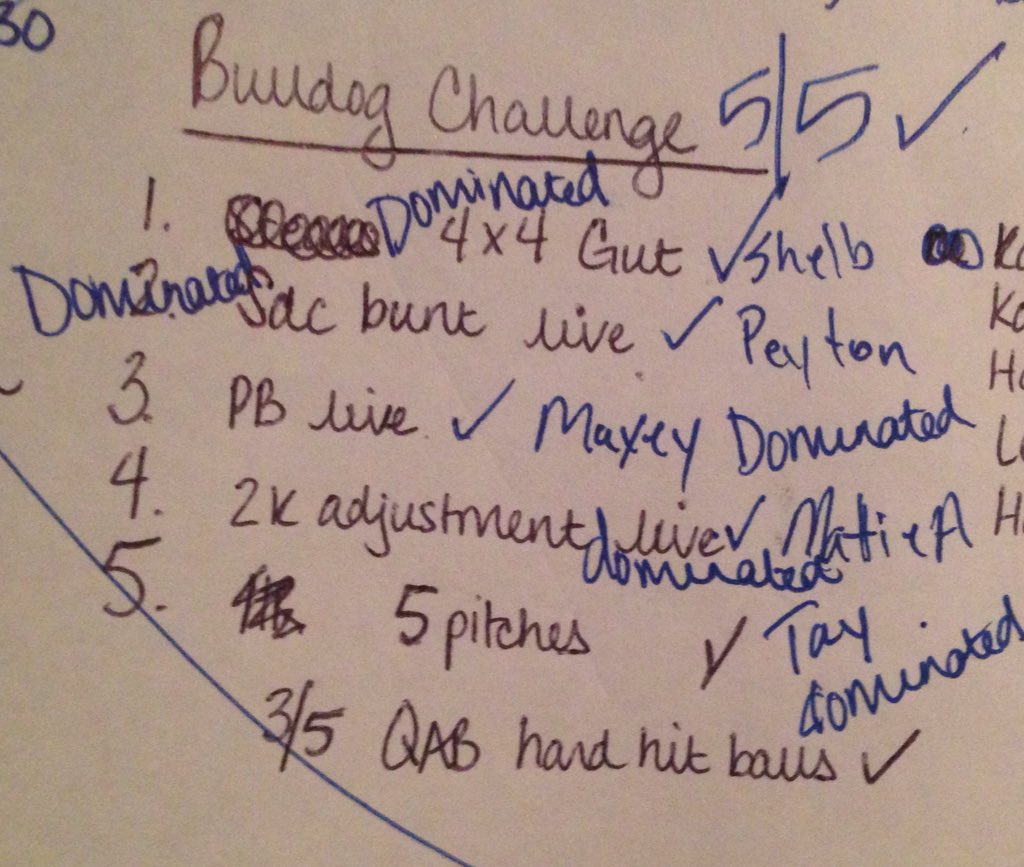 30
Bulldog Challenge 5/5 ✓
Dominated
1. 4x4 Gut ✓ Shelb
Dominated
2. Sac bunt live ✓ Peyton
3. PB live ✓ Maxey Dominated
4. 2K adjustment live ✓ Katie A
dominated
5. 5 pitches ✓ Tay
dominated
3/5 QAB hard hit balls ✓